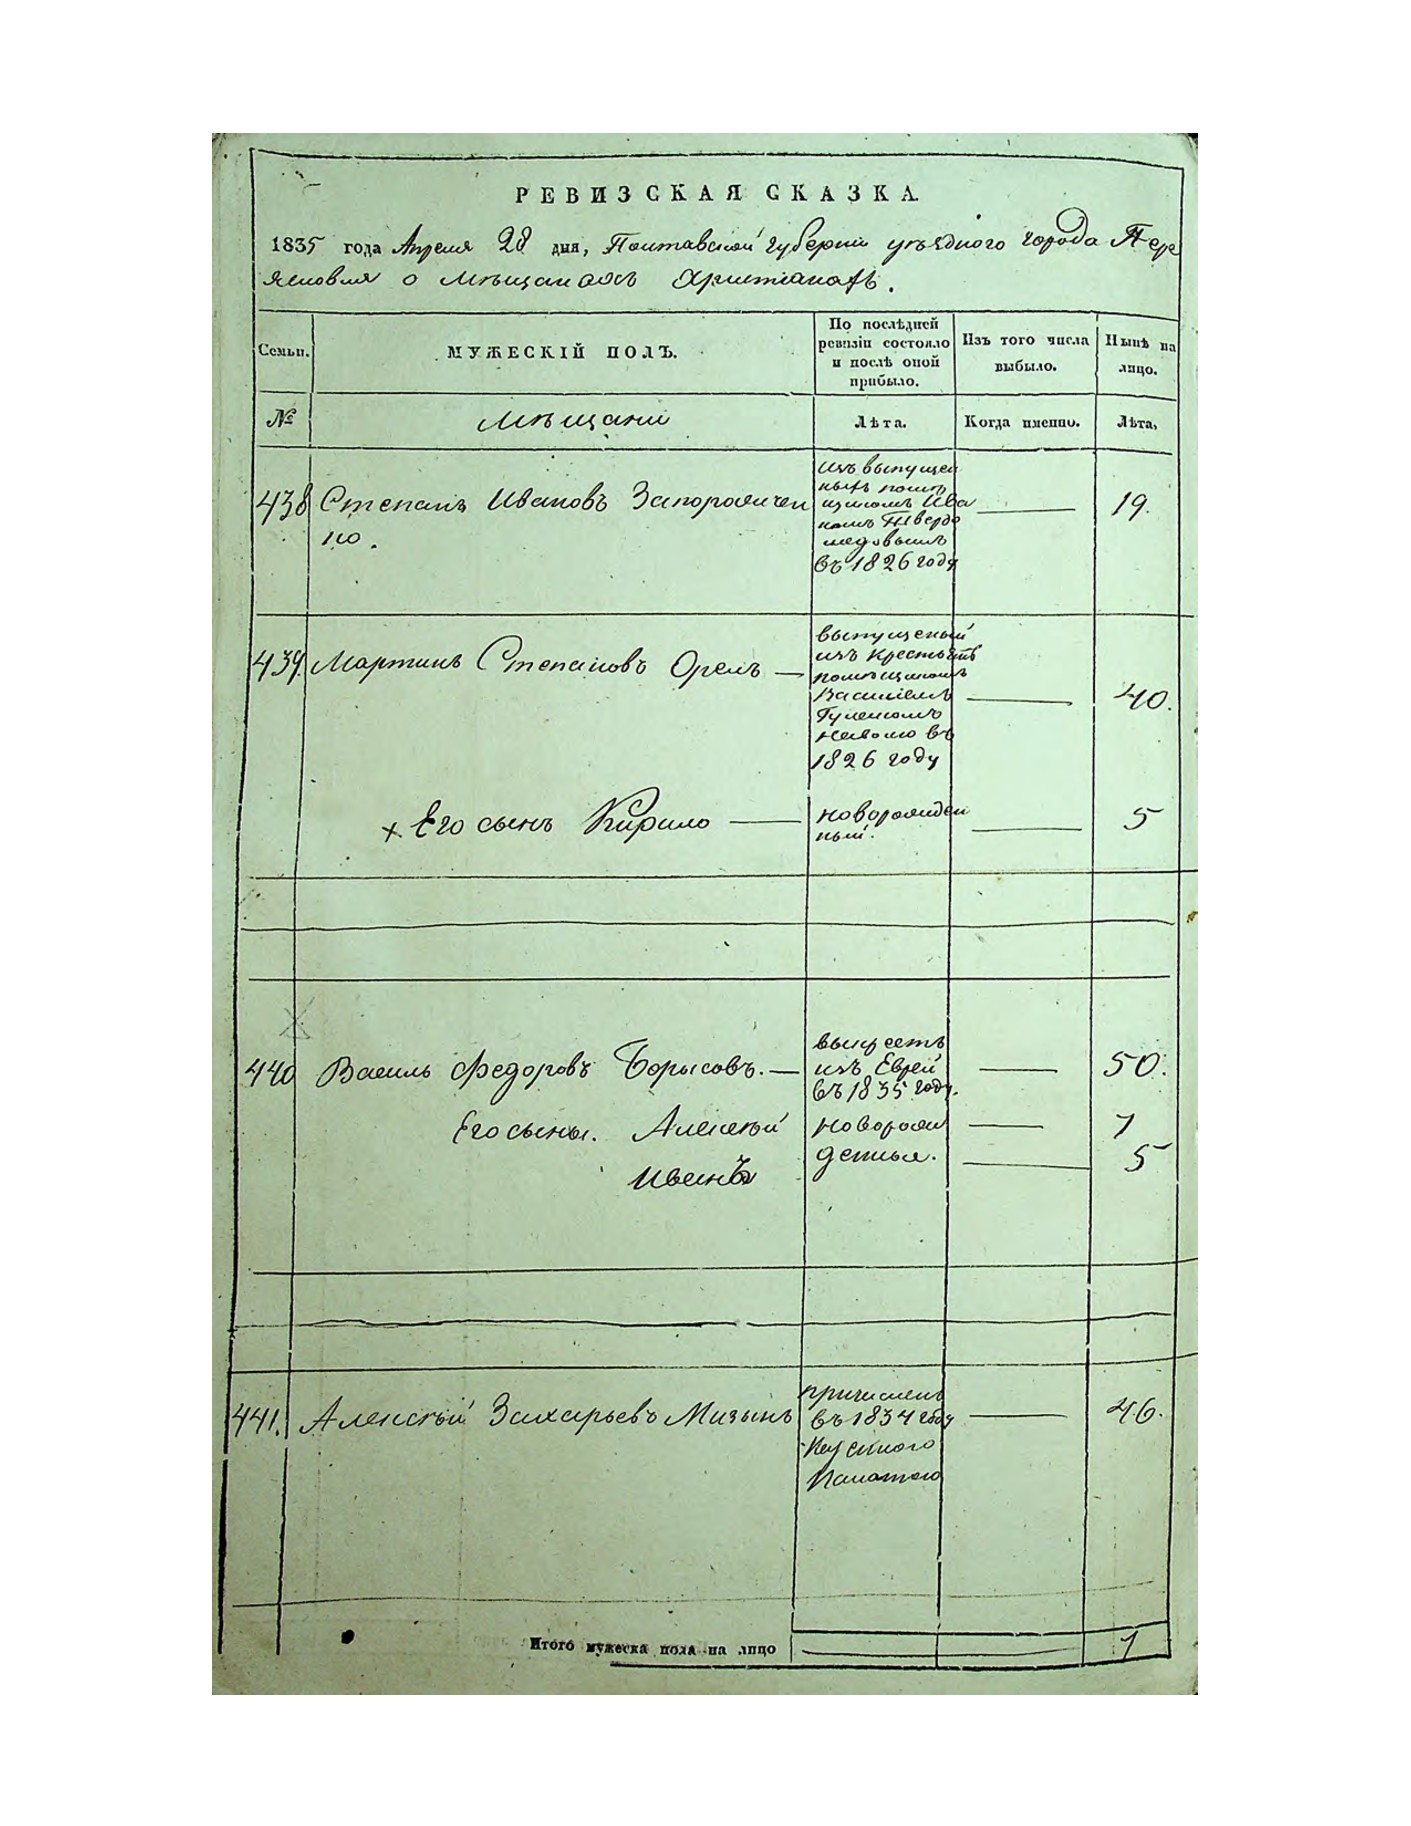 РЕВИЗСКАЯ СКАЗКА.
1835 года Апреля 28 дня, Полтавской Губерніи уѣзднаго города Пере
яславля о мѣщанахъ Христіанахъ.
Семьи.
МУЖЕСКІЙ ПОЛЪ.
По послѣдней
ревизіи состояло
и послѣ оной
прибыло.
Изъ того числа
выбыло.
Нынѣ на
лицо.
№
Мѣщани
Лѣта.
Когда именно.
Лѣта,
438
Степанъ Ивановъ Запорожчен
ко.
изъ выпущен
ныхъ помѣ
щикомъ Ива
номъ
въ 1826 году
19.
439.
Мартинъ Степановъ Орелъ —
выпущеный
изъ крестьянъ
помѣщикомъ
Василіемъ
на волю въ
1826 году
40.
х. Его сынъ Кирило —
новорожден
ный.
5
440
Василь Федоровъ Борисовъ. —
выкрестъ
изъ Еврей
въ 1835 году.
50.
Его сыны. Алексѣй
новорож
7
Иванъ
денные.
5
441.
Алексѣй Захарьевъ Мизынъ
причисленъ
въ 1834 году
Казенною
Палатою
46.
Итого мужеска пола на лицо
7